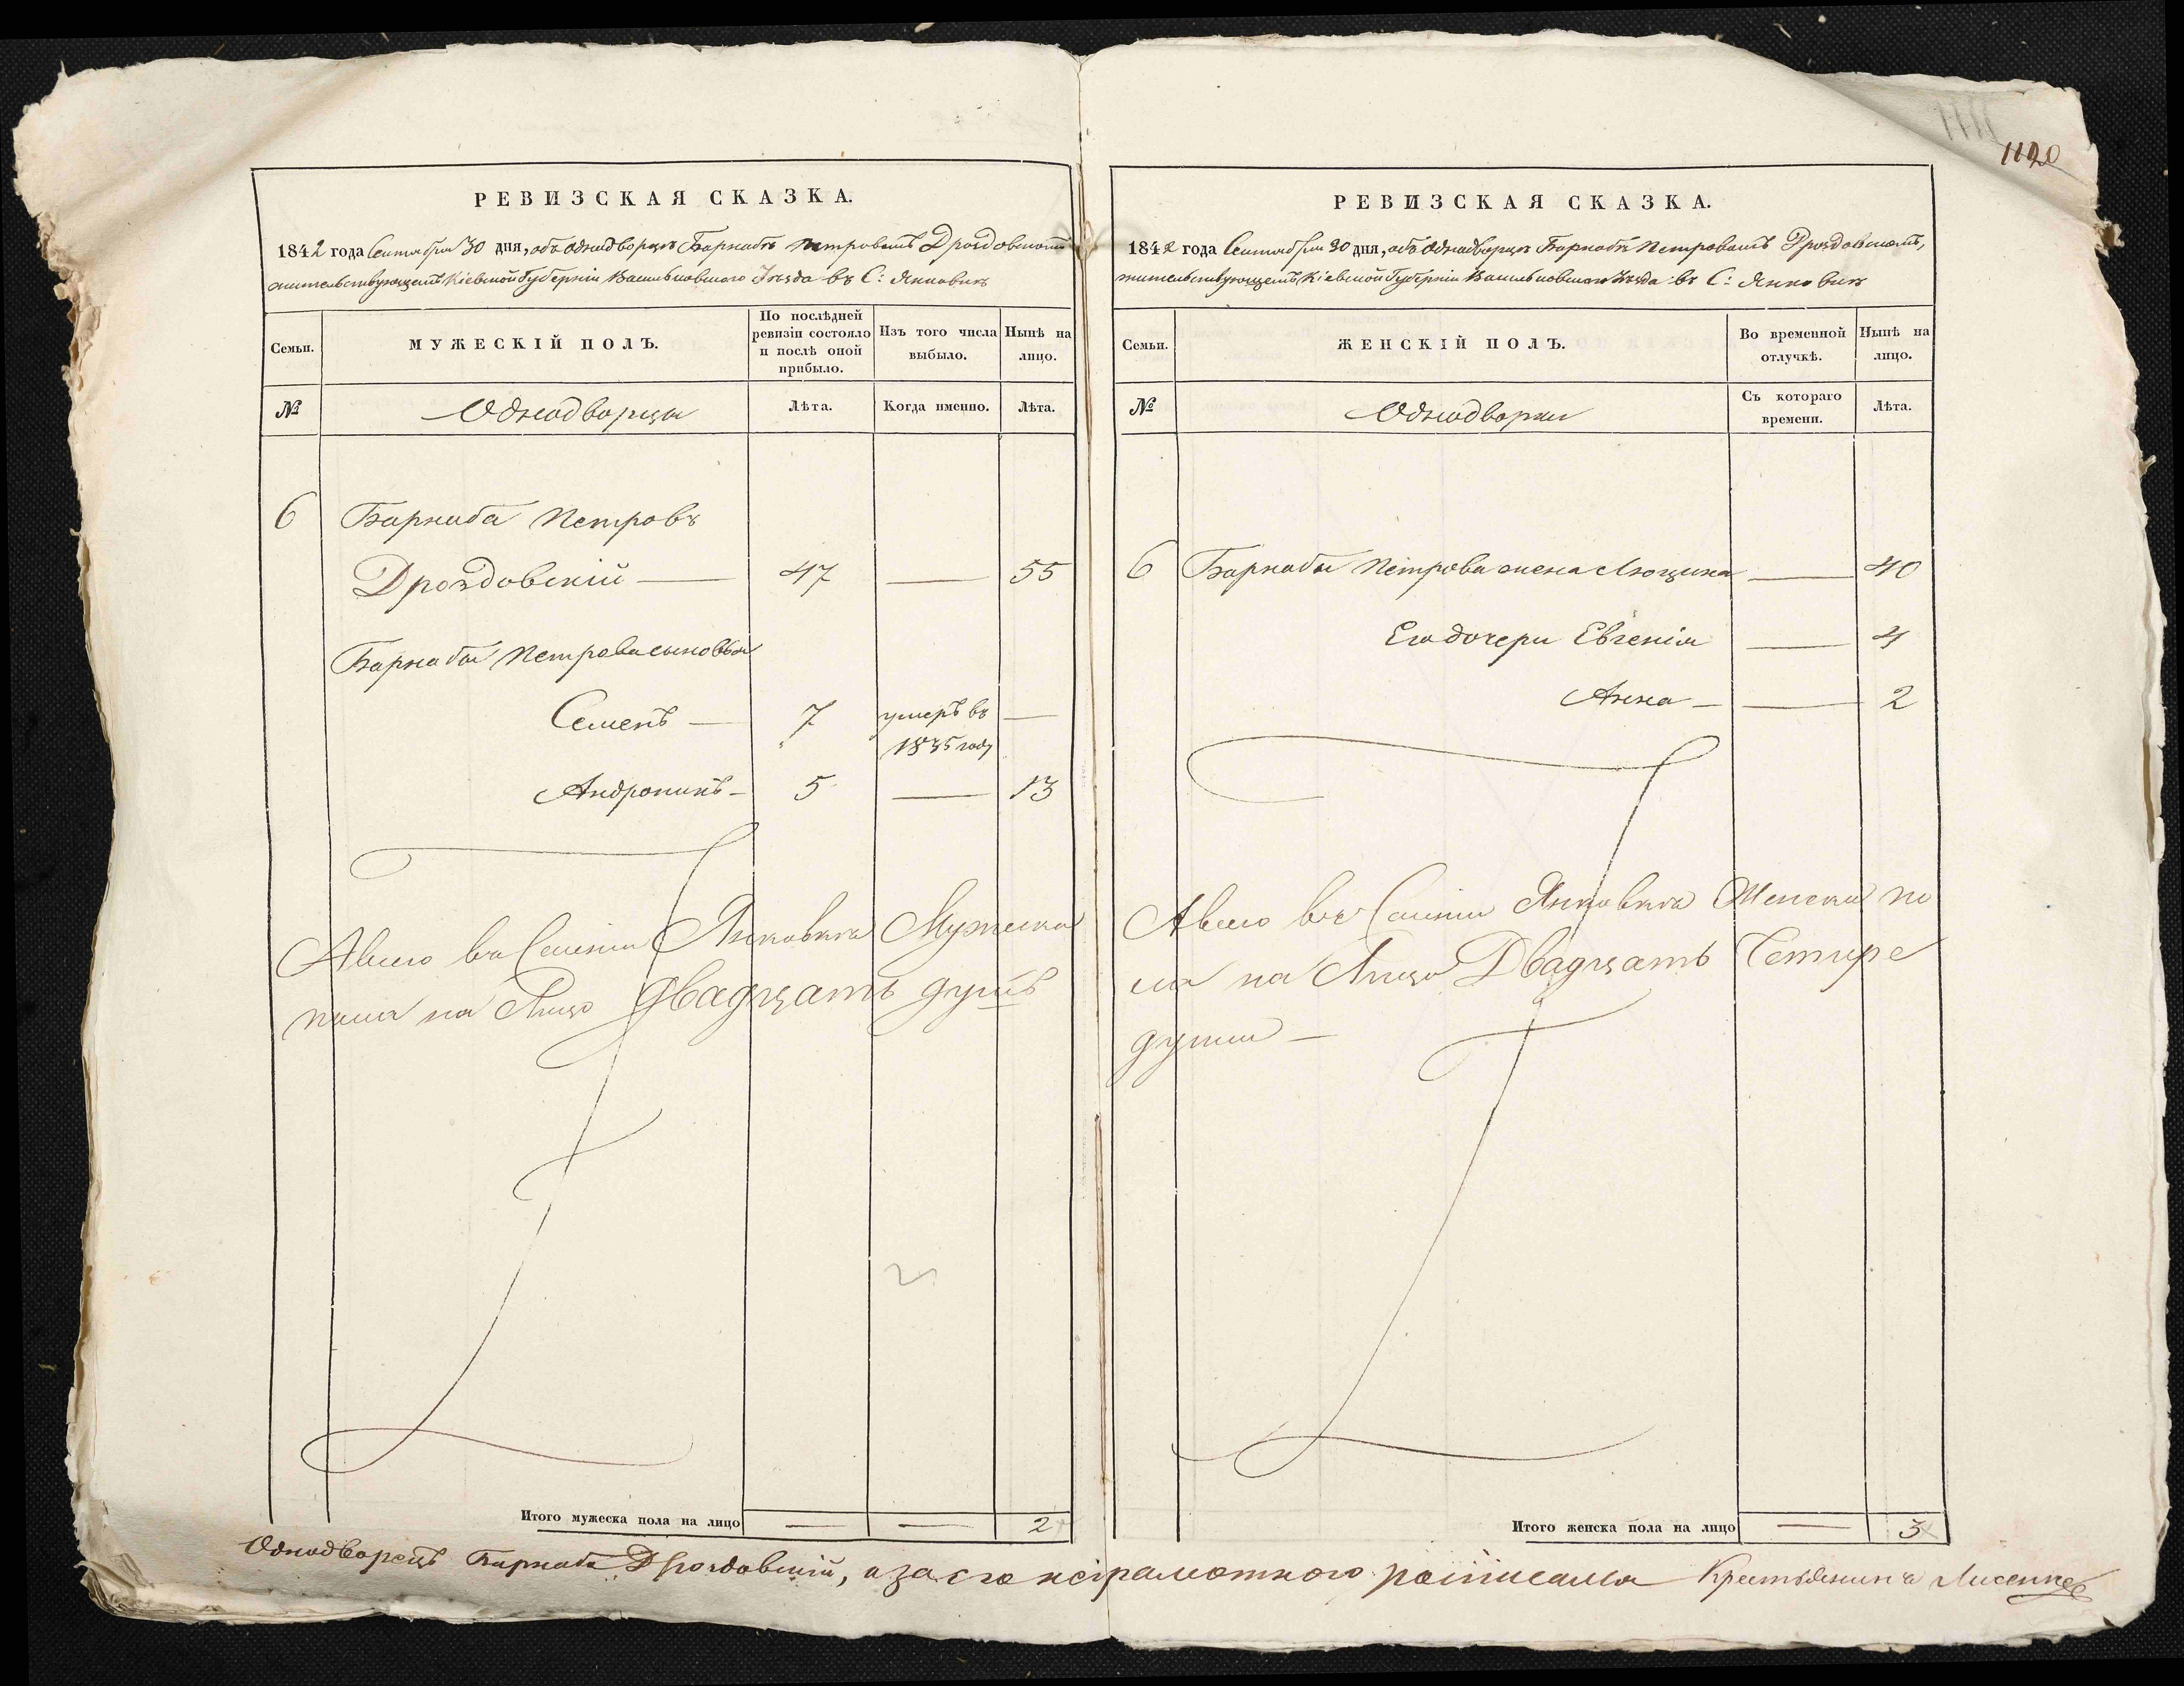 1120
РЕВИЗСКАЯ СКАЗКА.
1842 года Сентября 30 дня, объ Однодворцѣ Барнабѣ Петровомъ Дроздовскомъ
жительствующемъ Кіевской Губерніи Васильковскаго Уѣзда въ С: Янковкѣ
Семьи.
МУЖЕСКІЙ ПОЛЪ.
По послѣдней
ревизіи состояло
и послѣ оной
прибыло.
Изъ того числа
выбыло.
Нынѣ на
лицо.
№
Однодворцы
Лѣта.
Когда именно.
Лѣта.
6 Барнаба Петровъ
Дроздовскій — 47 — 55
Барнабы Петрова сыновья
Семенъ — 7 умеръ въ —
1835 году
Андроникъ — 5 — 13
А всего въ Селеніи Янковка Мужеска
пола на Лицо Двадцать душъ
2
Итого мужеска пола на лицо — — 2
РЕВИЗСКАЯ СКАЗКА.
1842 года Сентября 30 дня, объ Однодворцѣ Барнабѣ Петровомъ Дроздовскомъ,
жительствующемъ Кіевской Губерніи Васильковскаго Уѣзда въ С: Янковкѣ
Семьи.
ЖЕНСКІЙ ПОЛЪ.
Во временной
отлучкѣ.
Нынѣ на
лицо.
№
Однодворки
Съ котораго
времени.
Лѣта.
6 Барнабы Петрова жена Люцина — 40
Его дочери Евгенія — 4
Анна — — 2
А всего въ Селеніи Янковка Женска по
ла на Лицо Двадцать Четыре
души —
Итого женска пола на лицо — 3
Однодворецъ Барнаба Дроздовскій, а за его неграмотного росписался Крестьянинъ Лисенко